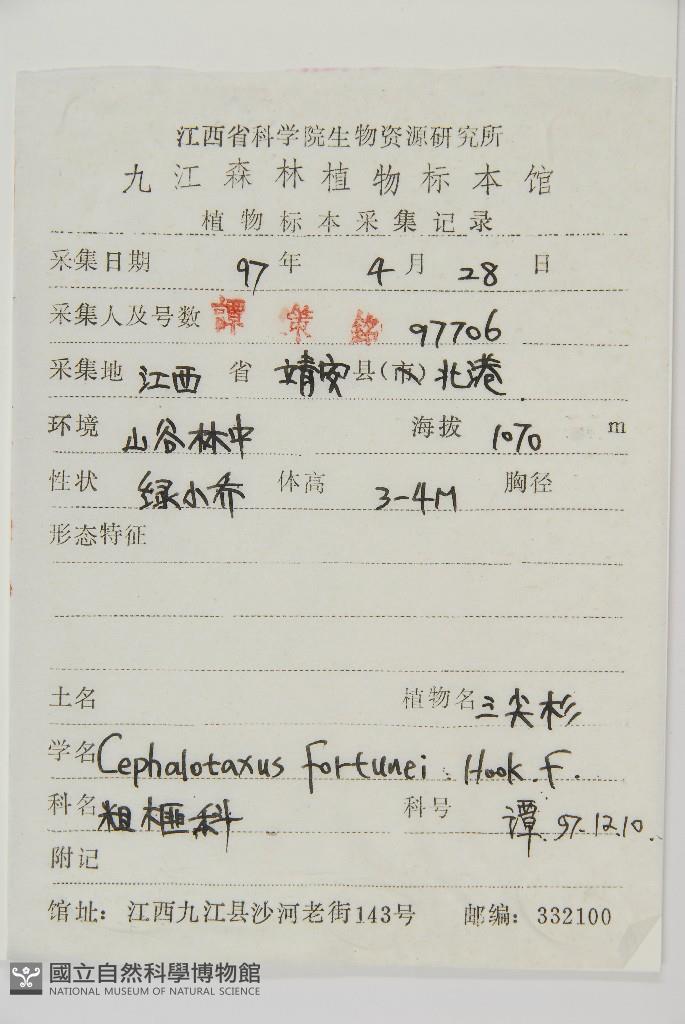 江西省科学院生物资源研究所
九江森林植物标本馆
植物标本采集记录
采集日期 97 年 4 月 28 日
采集人及号数 譚策銘 97706
采集地 江西 省 靖安 县(市) 北港
环境 山谷林中 海拔 1070 m
性状 绿小乔 体高 3-4M 胸径
形态特征
土名 植物名 三尖杉
学名 Cephalotaxus fortunei. Hook. F.
科名 粗榧科 科号 谭. 97.12.10.
附记
馆址：江西九江县沙河老街143号 邮编：332100
國立自然科學博物館
NATIONAL MUSEUM OF NATURAL SCIENCE